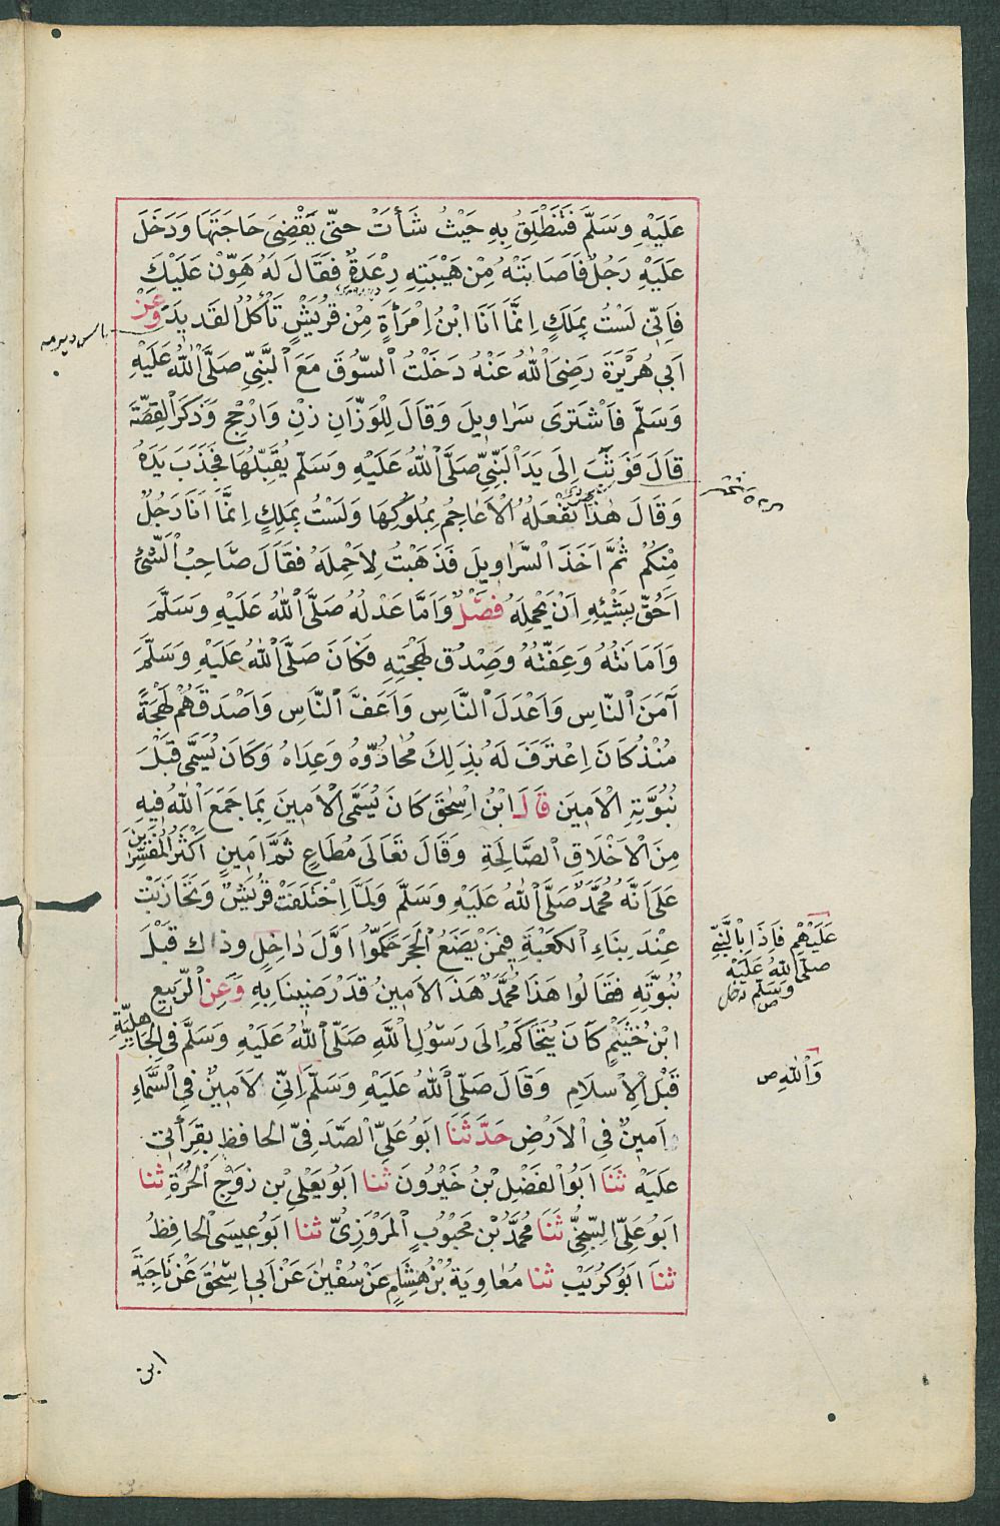 عَلَيْهِ وَسَلَّمَ فَتَنْطَلِقُ بِهِ حَيْثُ شَأَتْ حتّى يَقْضِىَ حَاجَتَهَا وَدَخَلَ
عَلَيْهِ رَجُلٌ فَاَصَابَتْهُ مِنْ هَيْبَتِهِ رِعْدَةٌ فقَالَ لَهُ هَوِّنْ عَلَيْكَ
فاَنِّى لَسْتُ بِمَلَكٍ اِنَّمَا اَنَا ابْنُ اِمْرَأَةٍ مِنْ قُرَيْشٍ تَأْكُلُ القَديدَ وَعَنْ
اَبِى هُرَيْرَةَ رَضِىَ اللّٰهُ عَنْهُ دَخَلْتُ السّوُقَ مَعَ النَّبِىِّ صَلَّى اللّٰهُ عَلَيْهِ
وَسَلَّم فاَشْتَرَى سَرَاوِيلَ وَقاَلَ لِلْوَزّاَنِ زِنْ وَارْجِحْ وَذَكَرَ القِصَّةَ
قاَلَ فَوَثَبَ اِلَى يَدِ النَّبِىِّ صَلَّى اللّٰهُ عَلَيْهِ وَسَلّم يُقَبِّلُهَا فجَذَبَ يَدَهُ
وَقَالَ هٰذَا تَفْعَلُهُ الْاَعَاجِمُ بِمُلُوكِهَا وَلَسْتُ بِمَلِكٍ اِنَّمَا اَنَا رَجُلٌ
مِنْكُمْ ثُمَّ اَخَذَ السَّرَاوِيلَ فَذَهَبْتُ لِاَحْمِلَهُ فقَالَ صَاحِبُ الشّئِ
اَحُقّ بِشَيْئِهِ اَنْ يَحْمِلَهُ فصْلٌ وَاَمَّا عَدْلُهُ صَلَّى اللّٰهُ عَلَيْهِ وَسَلَّمَ
وَاَمَانَتُهُ وَعِفَّتُهُ وَصِدْقُ لَهْجَتِهِ فَكَانَ صَلَّى اللّٰهُ عَلَيْهِ وَسَلَّمَ
آمَنَ النّاسِ وَاَعْدَلَ النَّاسِ وَاَعَفَّ النَّاسِ وَاَصْدَقَهُمْ لَهْجَةً
مُنْذُ كَانَ اِعْتَرَفَ لَهُ بِذَلِكَ مُحَادُّوهُ وَعِدَاهُ وَكَانَ يُسَمَّى قَبْلَ
نُبُوَّتِهِ الْاَمِينَ قَالَ ابْنُ اسْحٰقَ كَانَ يُسَمَّى الْاَمِينَ بِمَا جَمَعَ اللّٰهُ فِيهِ
مِنَ الْاَخْلَاقِ الصَّالِحَةِ وَقَالَ تَعَالَى مُطَاعٍ ثَمَّ اَمِينٍ اَكْثَرُ المُفَسِّرِينَ
عَلَى اَنَّهُ مُحَمَّدٌ صَلَّى اللّٰهُ عَلَيْهِ وَسَلَّم وَلَمَّا اِخْتَلَفَتْ قُرَيْشٌ وَتَحَازَبَتْ
عِنْدَ بِنَاءِ الكَعْبَةِ فِيمَنْ يَضَعُ الْحَجَرَ حَكَّمُوا اَوَّلَ دَاخِلٍ وذاك قَبْلَ
نُبُوَّتِهِ فقَالُوا هَذَا مُحَمَّدٌ هَذَا الاَمِينُ قَدْ رَضِينَا بِهِ وَعَنِ الرّبِيعِ
ابْنِ خُثَيْمٍ كَانَ يُتَحَاكَمُ اِلَى رَسُولِ اللّٰهِ صَلَّى اللّٰهُ عَلَيْهِ وَسَلَّم فى الجَاهِلِيَّةِ
قَبْلَ الْاِسلَامِ وَقَالَ صَلَّى اللّٰهُ عَلَيْهِ وَسَلَّم اِنِّى لَاَمِينٌ فِى السَّمَاءِ
اَمِينٌ فِى الاَرْضِ حَدَّثَنَا ابَوُ عَلِىّ الصَّدَفِىّ الحافِظُ بِقِرَأَتِى
عَلَيْهِ ثَنَا ابَوُ الْفَضْلِ بْنُ خَيْرُونَ ثَنا ابَوُ يَعْلِى بْن زَوْجِ الْحُرَّةِ ثنا
ابَوُ عَلِىّ السِّنْجِىُّ ثَنَا مُحَمَّدُ بْن مَحْبُوبٍ المَرْوَزِىُّ ثنا ابَوُ عيسَى الحافِظُ
ثنَا ابَوُ كُرَيْب ثنا مُعَاوِيَةُ بْنُ هِشَامٍ عَنْ سُفْيٰنَ عَنْ اَبِى اسْحٰقَ عَنْ نَاجِيَةَ
عَلَيْهِمْ فَاِذَا بِالنَّبِىِّ
صلَّى اللّٰهُ عَلَيْه
وَسَلَّم دَخَلَ
ص
وَاللّٰهِ ص
ابن